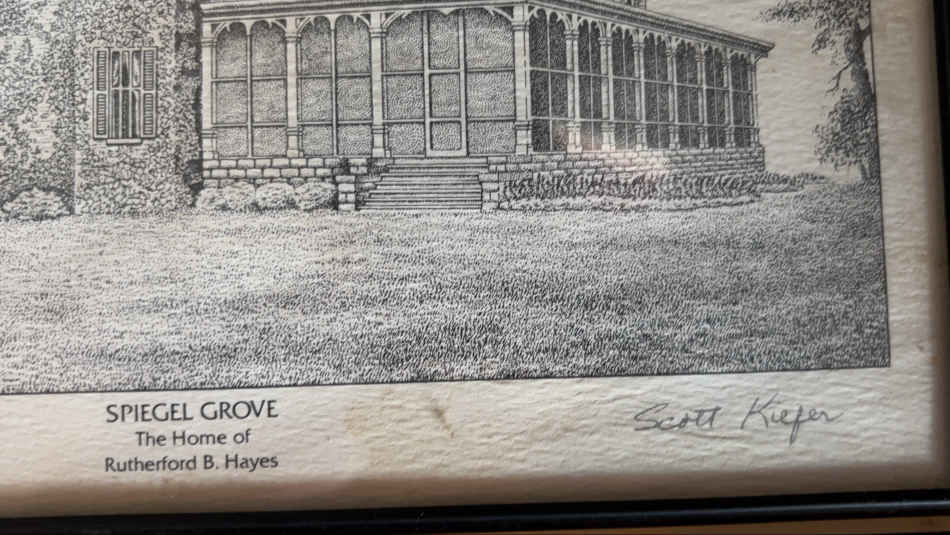 SPIEGEL GROVE
The Home of
Rutherford B. Hayes
Scott Kiefer